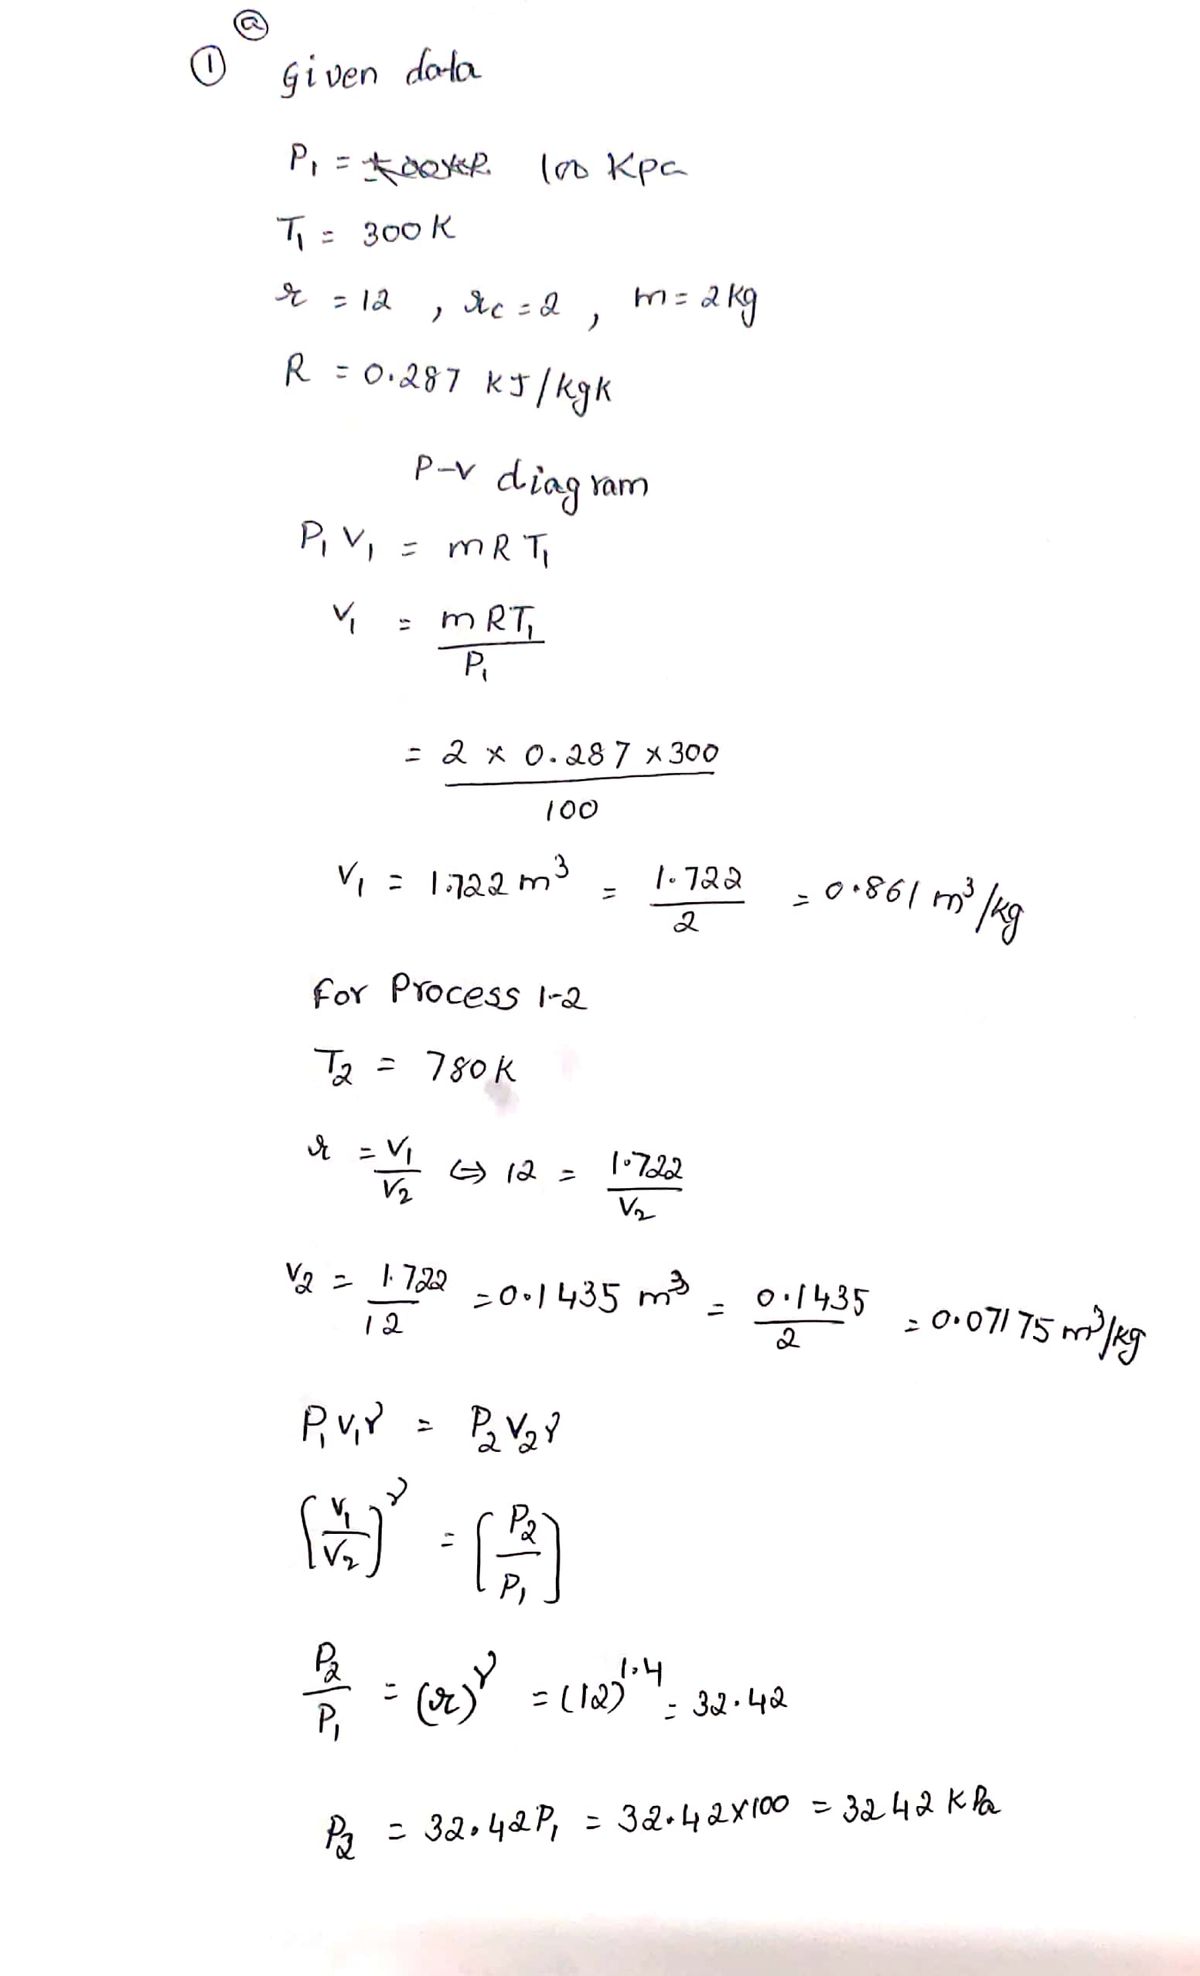 ⓐ
① Given data
P₁ = 100 Kpa
T₁ = 300K
r = 12 , rc = 2 , m = 2kg
R = 0.287 kJ/kgk
P-V diagram
P₁ V₁ = mRT₁
V₁ = mRT₁ / P₁
= 2 × 0.287 × 300 / 100
V₁ = 1.722 m³ = 1.722 / 2 = 0.861 m³/kg
For Process 1-2
T₂ = 780K
r = V₁ / V₂ ⇔ 12 = 1.722 / V₂
V₂ = 1.722 / 12 = 0.1435 m³ = 0.1435 / 2 = 0.07175 m³/kg
P₁ V₁γ = P₂ V₂γ
[V₁ / V₂]^γ = [P₂ / P₁]
P₂ / P₁ = (r)^γ = (12)^1.4 = 32.42
P₂ = 32.42P₁ = 32.42×100 = 3242 KPa